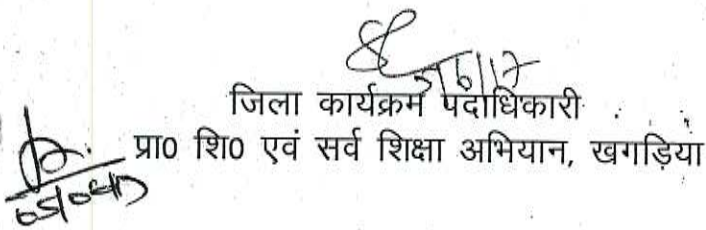 5/6/17
जिला कार्यक्रम पदाधिकारी
प्रा0 शि0 एवं सर्व शिक्षा अभियान, खगड़िया